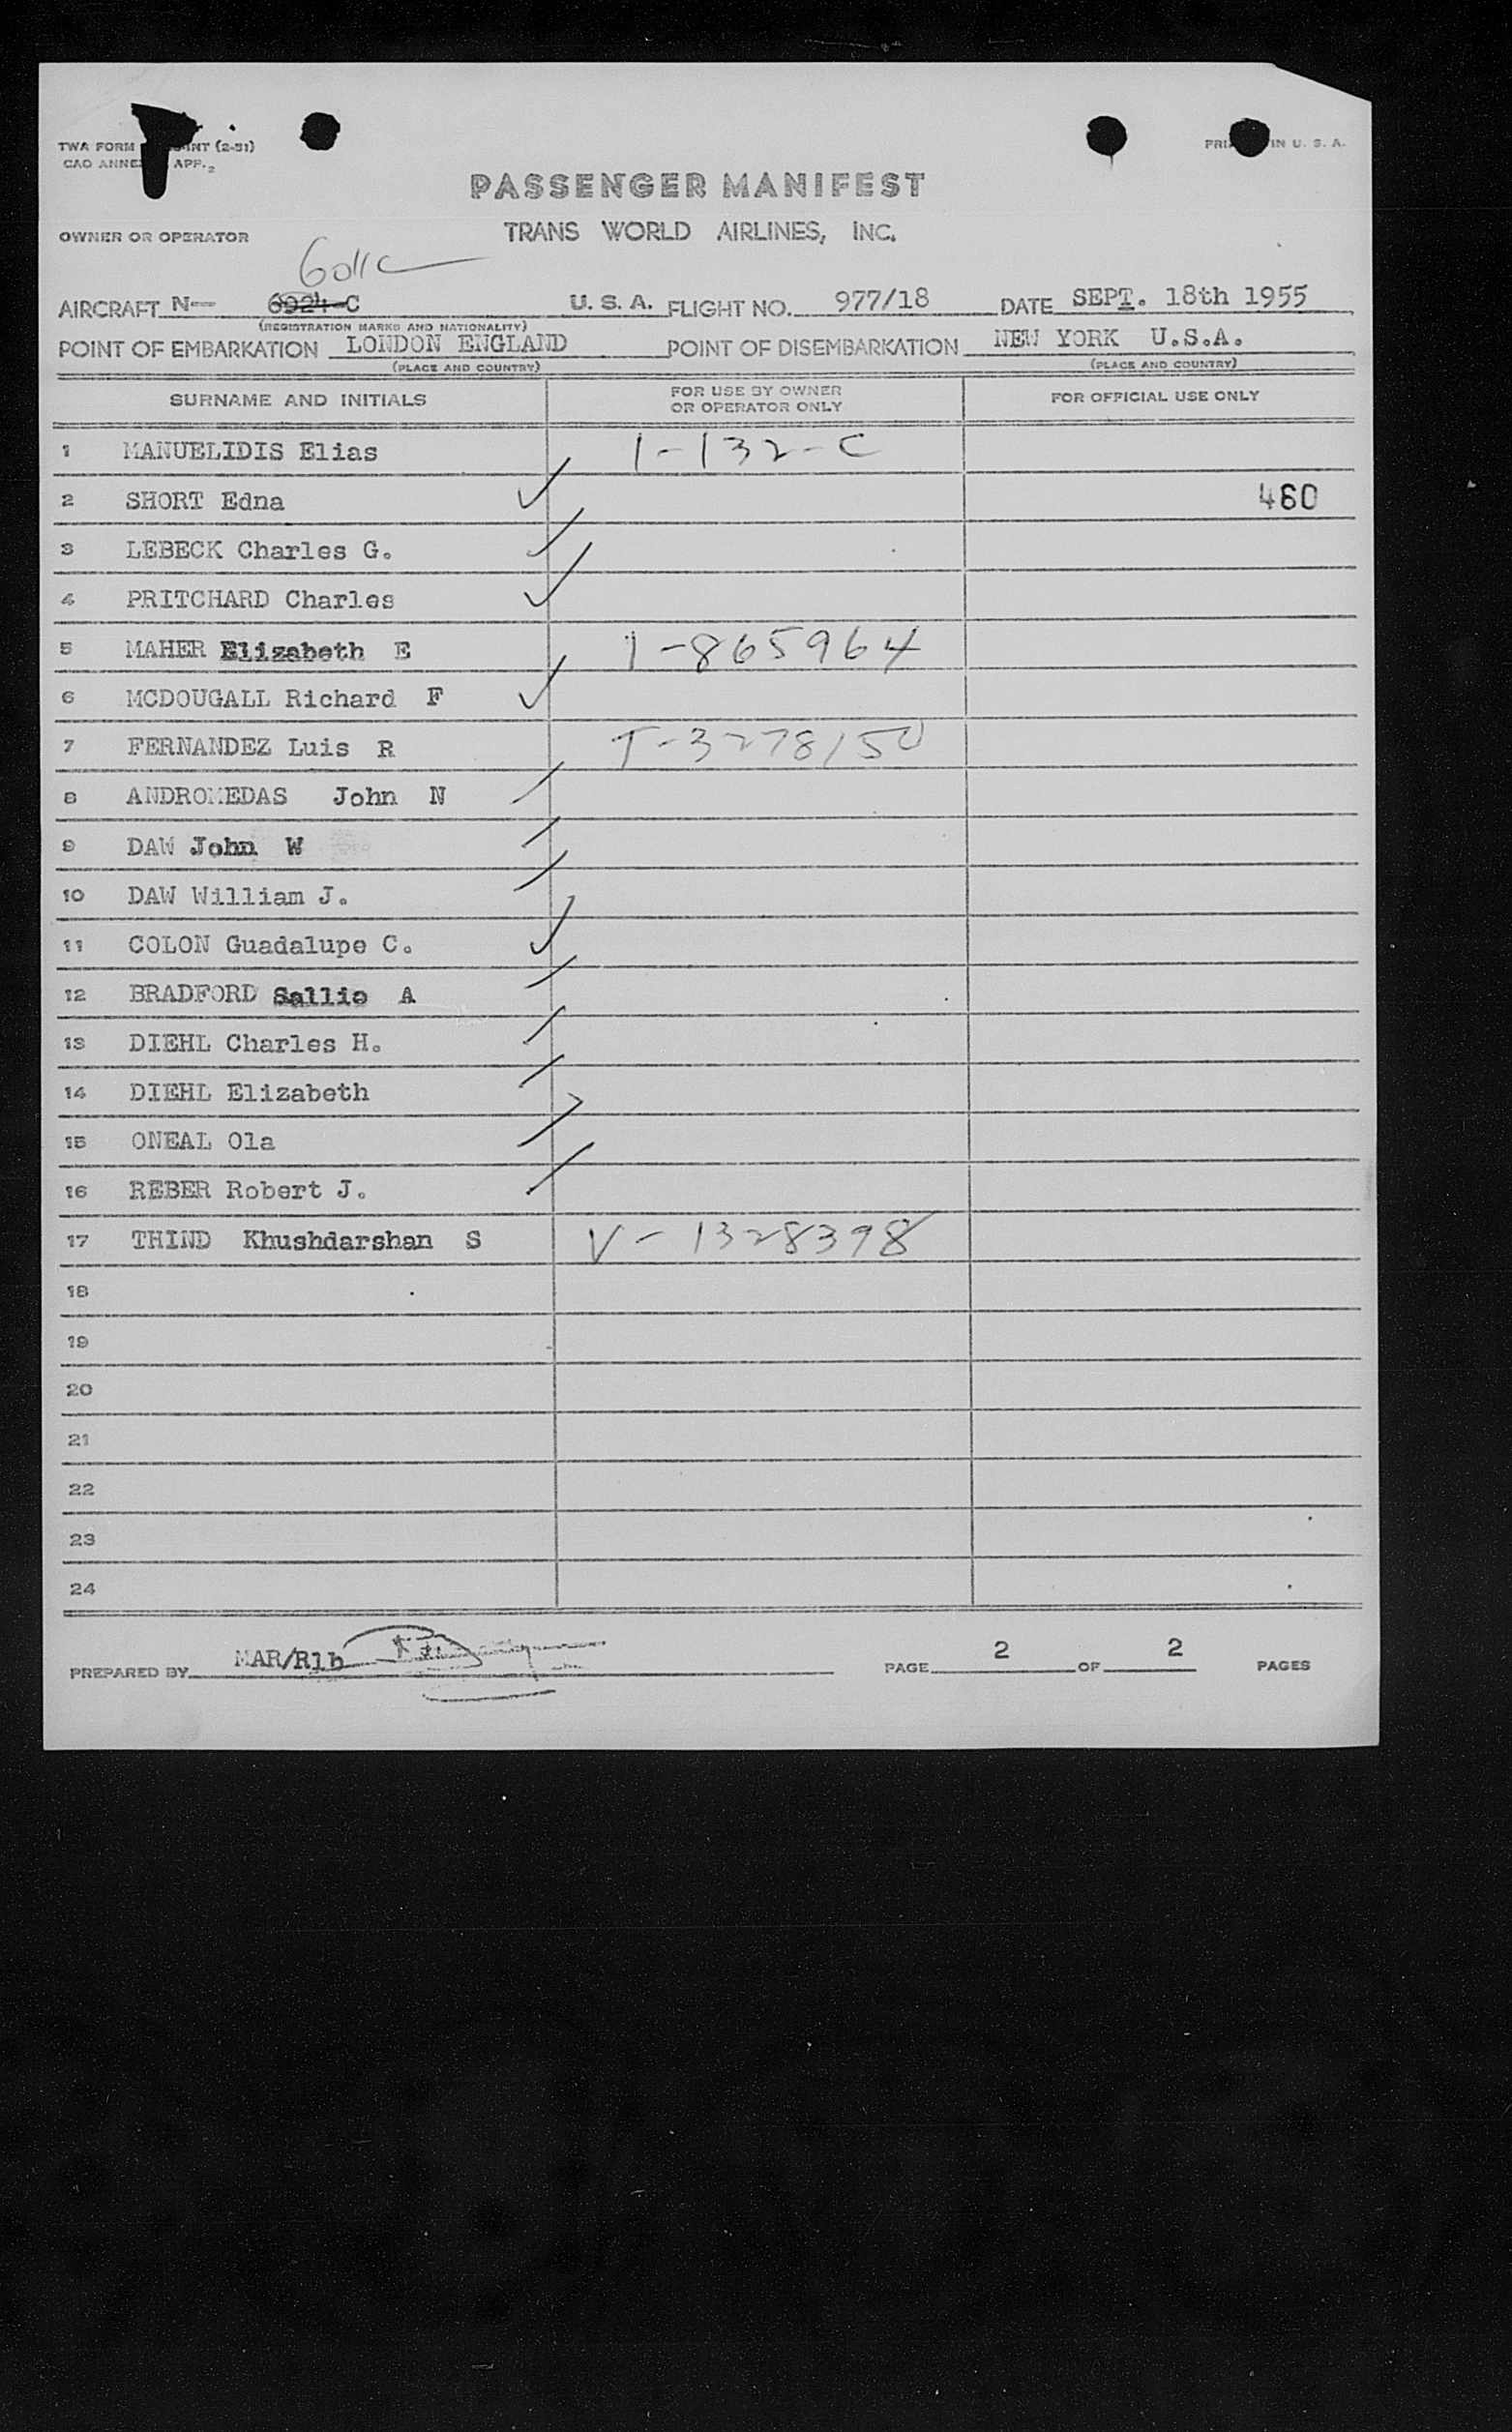 TWA FORM INT (2-51)
CAO ANNE APP. 2
PRI IN U. S. A.
PASSENGER MANIFEST
OWNER OR OPERATOR
TRANS WORLD AIRLINES, INC.
6011C
AIRCRAFT N- 6024-C U. S. A. FLIGHT NO. 977/18 DATE SEPT. 18th 1955
(REGISTRATION MARKS AND NATIONALITY)
POINT OF EMBARKATION LONDON ENGLAND POINT OF DISEMBARKATION NEW YORK U.S.A.
(PLACE AND COUNTRY) (PLACE AND COUNTRY)
SURNAME AND INITIALS FOR USE BY OWNER OR OPERATOR ONLY FOR OFFICIAL USE ONLY
1 MANUELIDIS Elias 1-132-C
2 SHORT Edna 460
3 LEBECK Charles G.
4 PRITCHARD Charles
5 MAHER Elizabeth E 1-865964
6 MCDOUGALL Richard F
7 FERNANDEZ Luis R T-3278150
8 ANDROMEDAS John N
9 DAW John W
10 DAW William J.
11 COLON Guadalupe C.
12 BRADFORD Sallie A
13 DIEHL Charles H.
14 DIEHL Elizabeth
15 ONEAL Ola
16 REBER Robert J.
17 THIND Khushdarshan S V-1328398
18
19
20
21
22
23
24
PREPARED BY MAR/Rlb PAGE 2 OF 2 PAGES